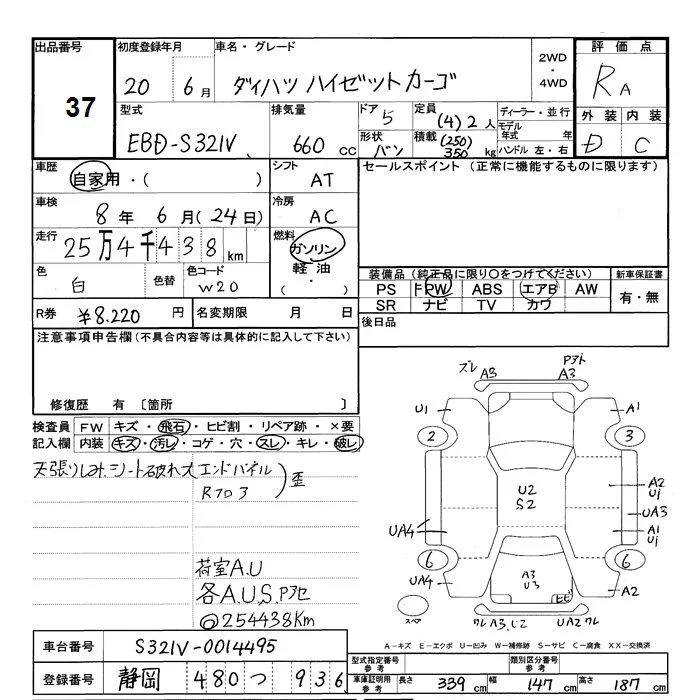 出品番号
37
初度登録年月
20 6月
車名・グレード
ダイハツ ハイゼットカーゴ
2WD
・
4WD
評価点
RA
外装 内装
D C
型式
EBD-S321V
排気量
660 cc
ドア
5
定員
(4) 2人
形状
バン
積載
(250)
350 kg
ディーラー・並行
モデル
年式 年
ハンドル 左・右
車歴
自家用・( )
シフト
AT
車検
8年 6月(24日)
冷房
AC
走行
25万4千438km
燃料
ガソリン
軽油
( )
色
白
色替
色コード
W20
R券
¥8.220円
名変期限 月 日
セールスポイント(正常に機能するものに限ります)
装備品(純正品に限り○をつけてください)
PS PW ABS エアB AW
SR ナビ TV カワ
新車保証書
有・無
後日品
注意事項申告欄(不具合内容等は具体的に記入して下さい)
修復歴 有〔箇所 〕
検査員
記入欄
FW キズ・飛石・ヒビ割・リペア跡・×要
内装 キズ・汚レ・コゲ・穴・スレ・キレ・破レ
天張りしみ、シート破れ大 エンドパネル
Rフロ3
歪
荷室A.U
各A.U.S.Pアセ
◎254438Km
ズレ A3 Pアト A3
U1 A1
2 3
U2
S2
A2
U1
UA3
UA4
A1
U1
6 6
UA4 A2
A3
U3
ヒビ
スペア
ワレA3,U2 UA2ワレ
A-キズ E-エクボ U-凹み W-補修跡 S-サビ C-腐食 XX-交換済
車台番号
S321V-0014495
登録番号
静岡 480 つ 936
型式指定番号
参考
類別区分番号
参考
車庫証明用
参考
長さ 339cm 幅 147cm 高さ 187cm